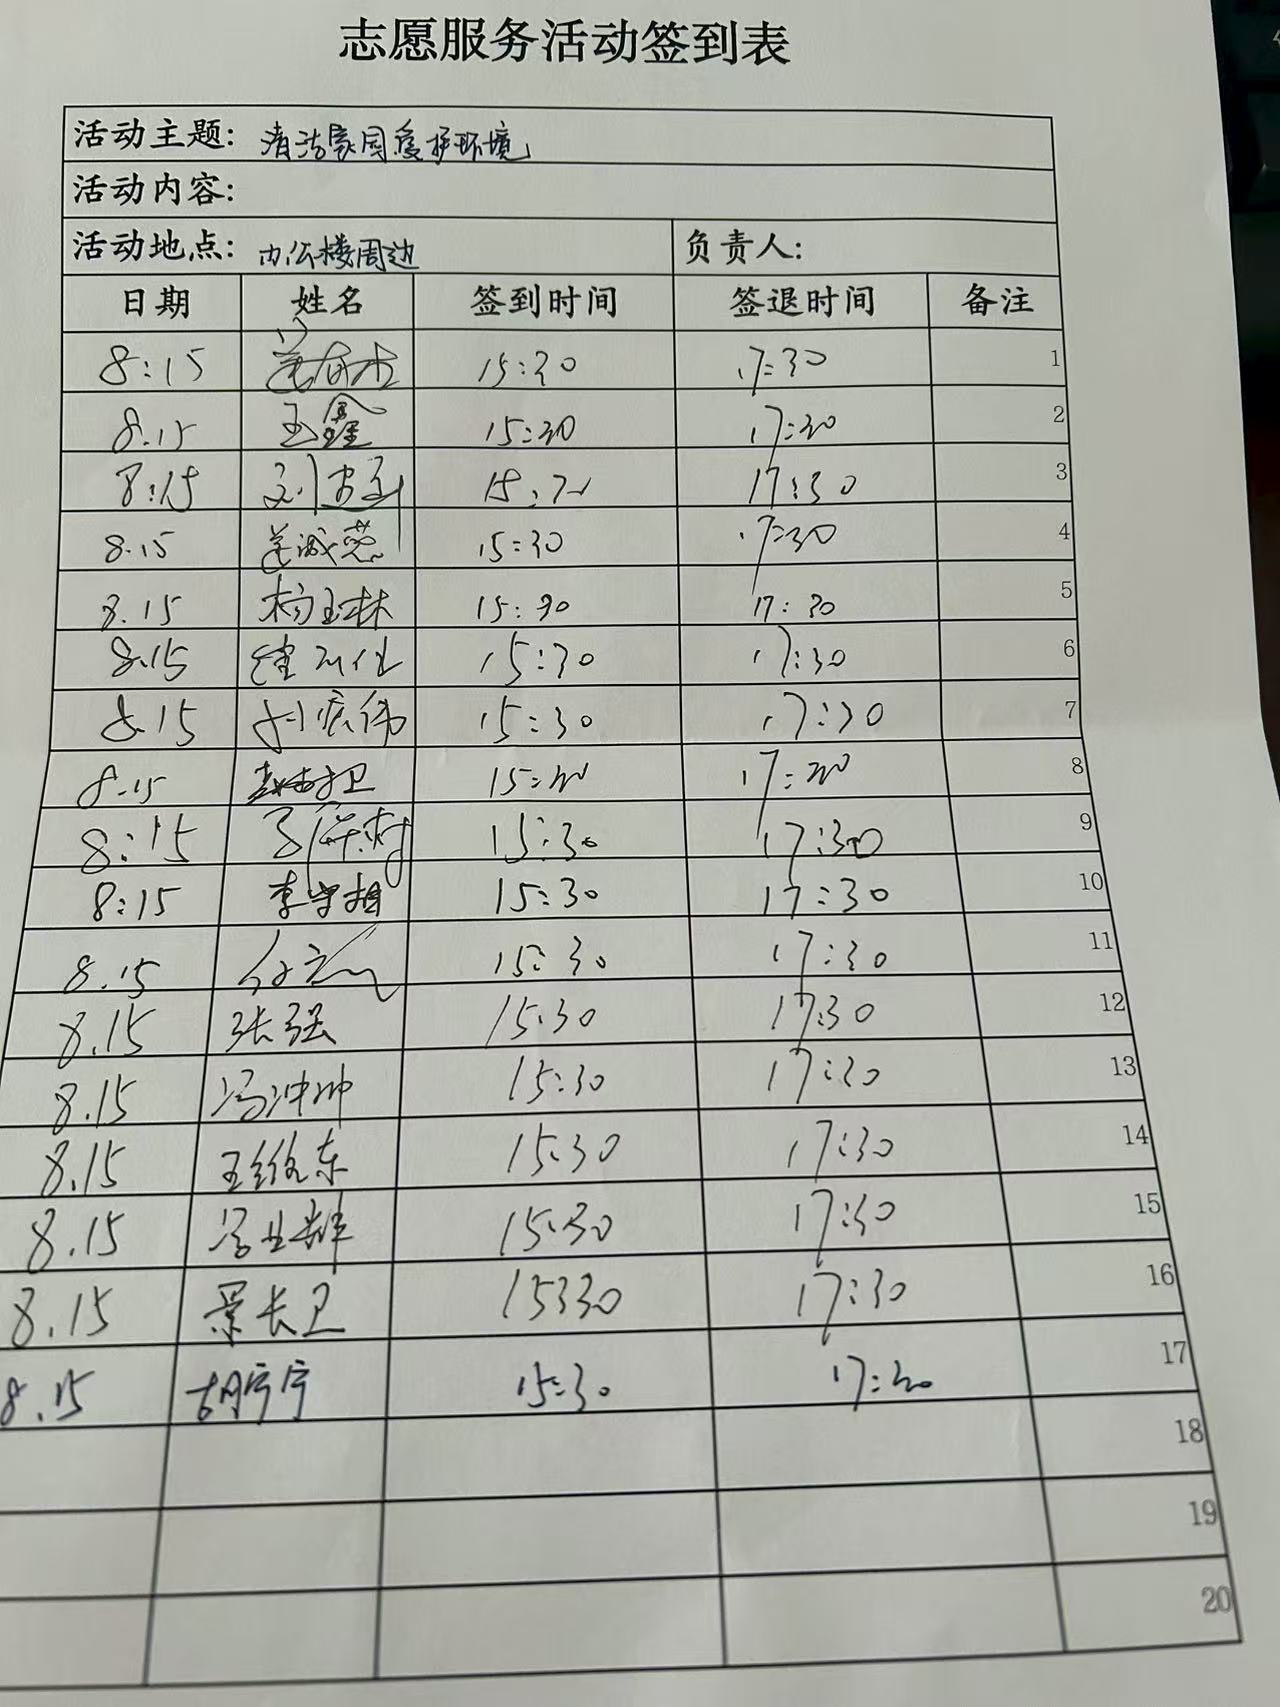 志愿服务活动签到表
活动主题: 清洁家园爱护环境
活动内容:
活动地点: 办公楼周边 负责人:
日期 姓名 签到时间 签退时间 备注
8:15 15:30 17:30 1
8.15 王鑫 15:30 17:30 2
8:15 17:30 3
8.15 15:30 17:30 4
8.15 杨玉林 15:30 17:30 5
8.15 15:30 17:30 6
8.15 15:30 17:30 7
8.15 15:30 17:30 8
8:15 15:30 17:30 9
8:15 李学相 15:30 17:30 10
8.15 15:30 17:30 11
8.15 张强 15:30 17:30 12
8.15 冯冲帅 15:30 17:30 13
8.15 王维东 15:30 17:30 14
8.15 15:30 17:30 15
8.15 景长卫 15330 17:30 16
8.15 胡宁宁 15:30 17:30 17
18
19
20